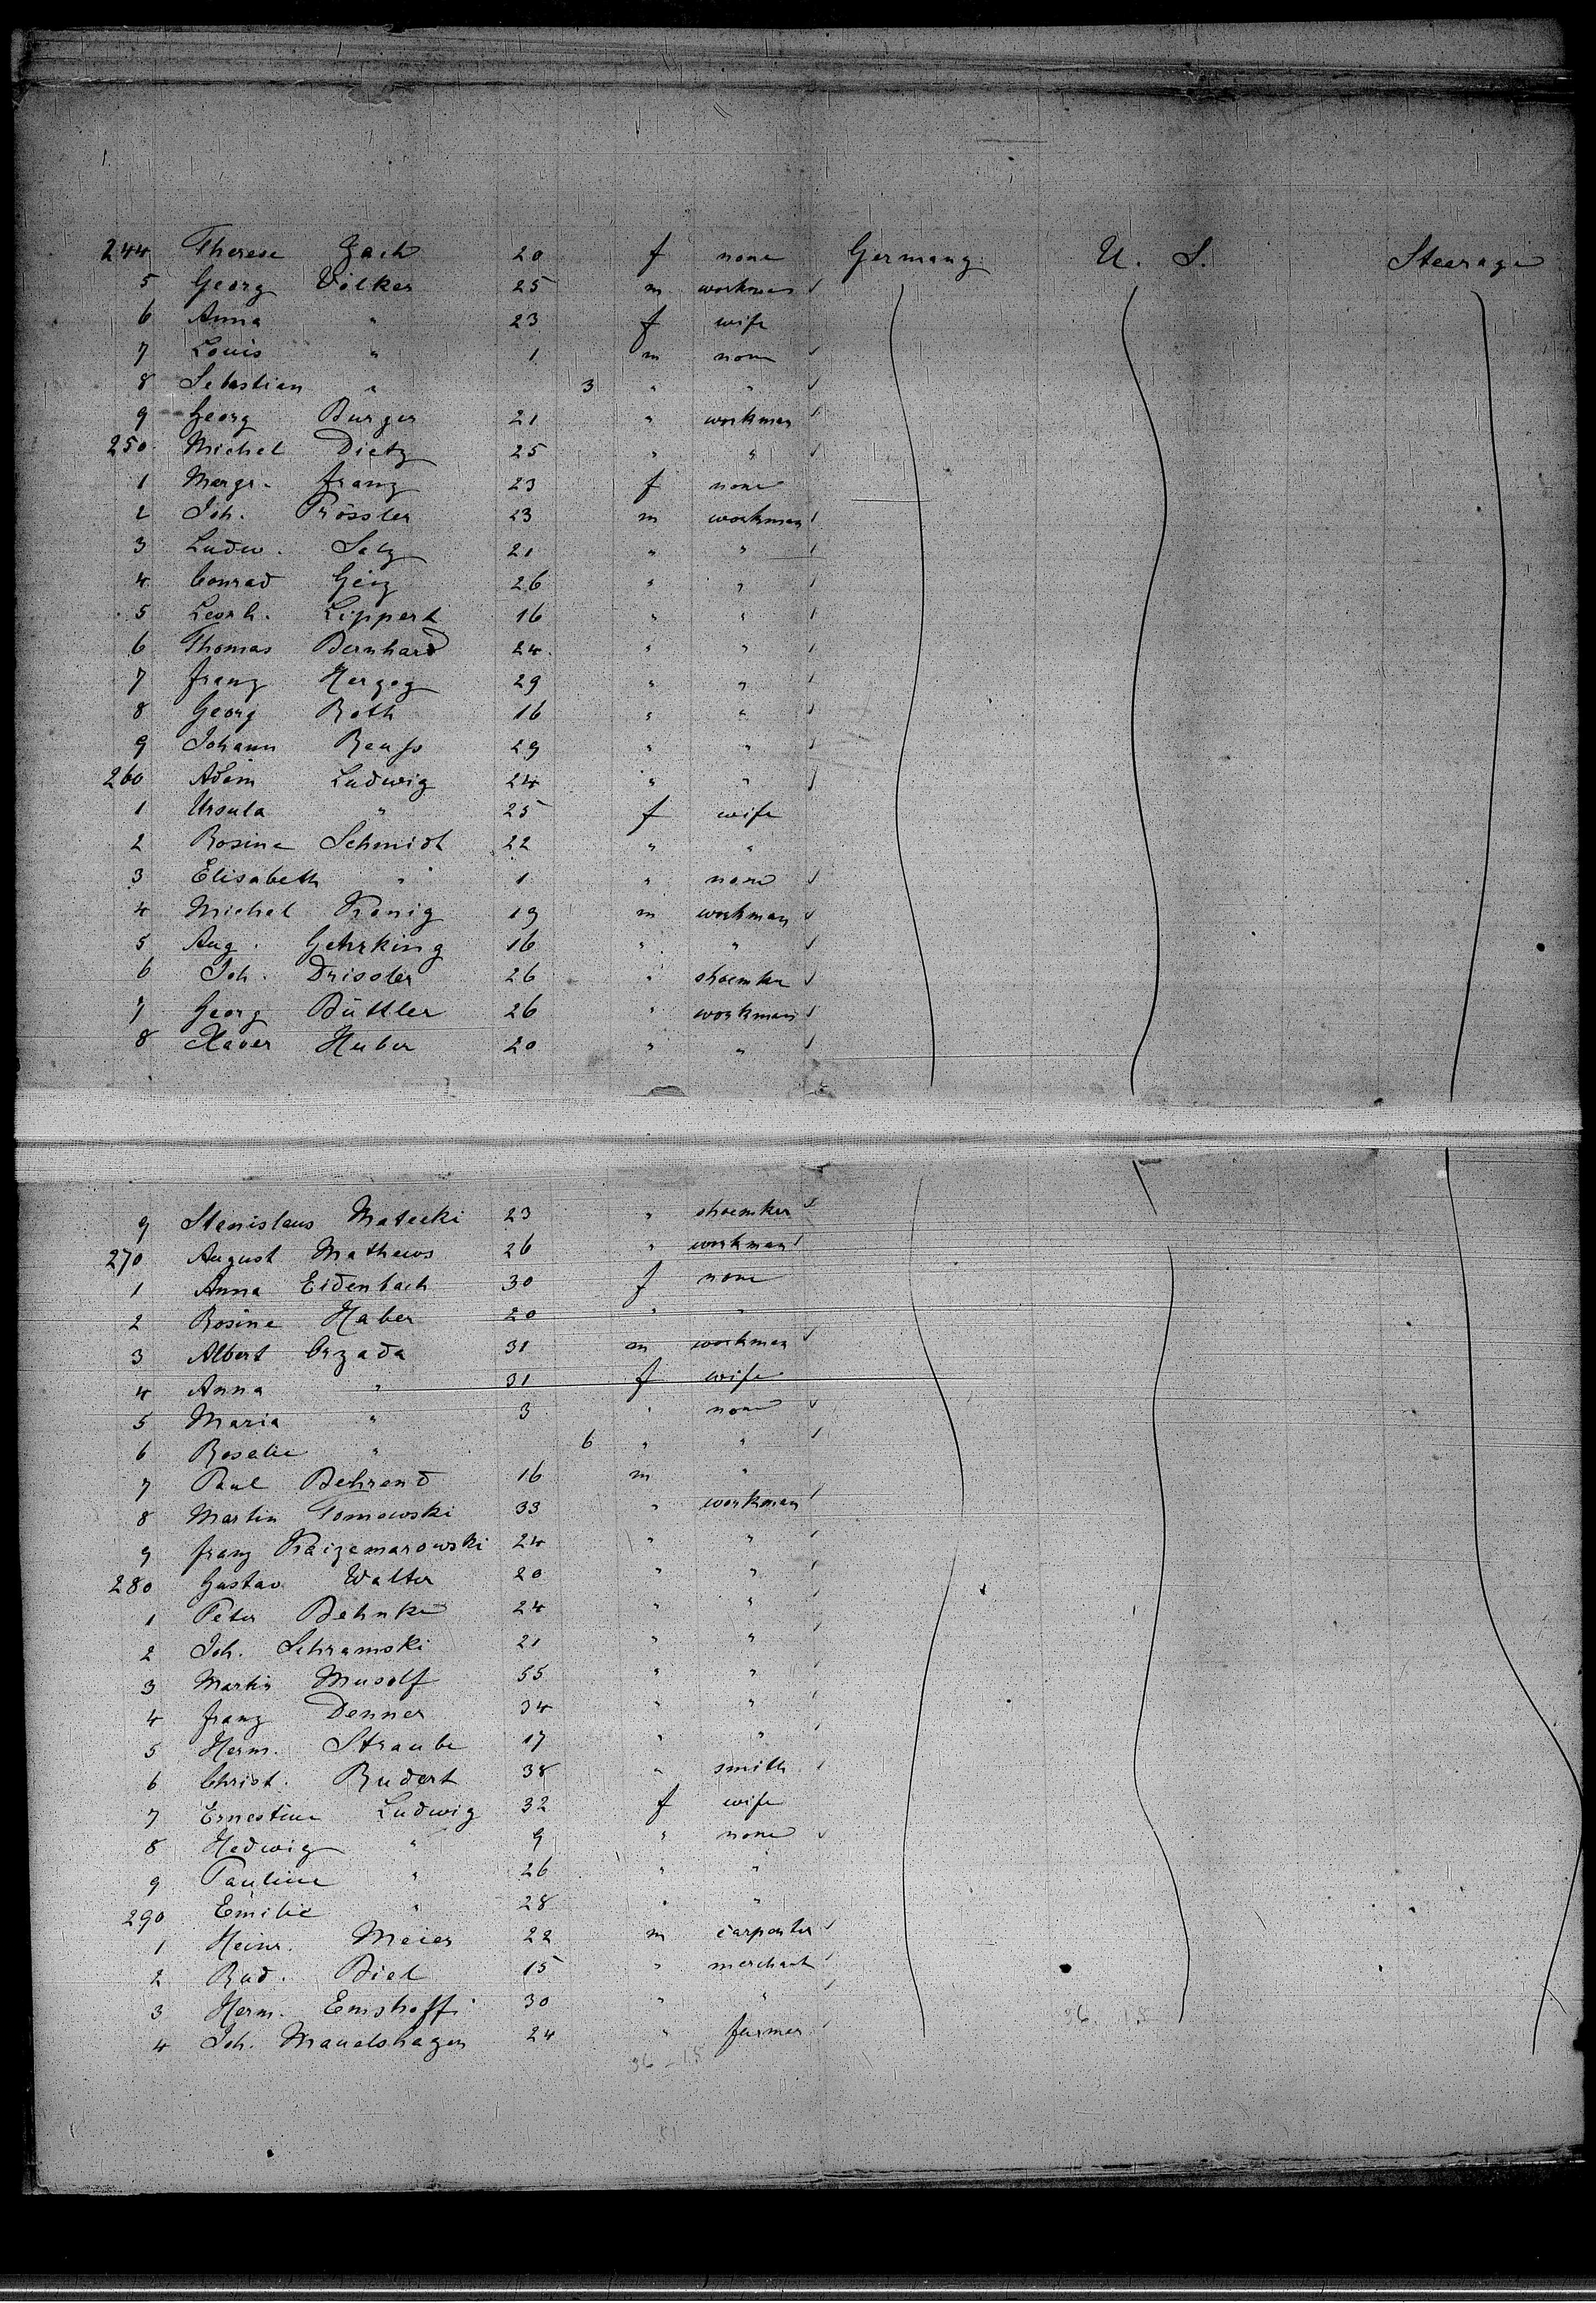 244 Therese Zach 20 f none Germany U. S. Steerage
5 Georg Völker 25 m workman ✓
6 Anna " 23 f wife
7 Louis " 1 m none ✓
8 Sebastian " 3 " " ✓
9 Georg Burger 21 " workman ✓
250 Michel Dietz 25 " " ✓
1 Margr. Franz 23 f none
2 Joh. Prössler 23 m workman ✓
3 Ludw. Salz 21 " " ✓
4 Conrad Geig 26 " " ✓
5 Leonh. Lippert 16 " " ✓
6 Thomas Bernhard 24 " " ✓
7 Franz Herzog 29 " " ✓
8 Georg Roth 16 " " ✓
9 Johann Reuss 29 " " ✓
260 Adam Ludwig 24 " " ✓
1 Ursula " 25 f wife
2 Rosine Schmidt 22 " "
3 Elisabeth " 1 " none ✓
4 Michel Kranig 19 m workman ✓
5 Aug. Gehrking 16 " " ✓
6 Joh. Drissler 26 " shoemker ✓
7 Georg Büttler 26 " workman ✓
8 Xaver Huber 20 " " ✓
9 Stanislaus Matecki 23 " shoemker ✓
270 August Mathews 26 " workman ✓
1 Anna Eidenbach 30 f none
2 Rosine Haber 20 " "
3 Albert Crzada 31 m workman ✓
4 Anna " 31 f wife
5 Maria " 3 " none ✓
6 Rosalie " 6 " " ✓
7 Paul Behrend 16 m "
8 Martin Tomowski 33 " workman ✓
9 Franz 24 " " ✓
280 Gustav Walter 20 " " ✓
1 Peter Behnke 24 " " ✓
2 Joh. Schramski 21 " " ✓
3 Martin Musolf 55 " " ✓
4 Franz Denner 34 " " ✓
5 Herm. Straube 17 " " ✓
6 Christ. Rudert 38 " smith ✓
7 Ernestine Ludwig 32 f wife
8 Hedwig " 9 " none ✓
9 Pauline " 26 " "
290 Emilie " 28 " "
1 Heinr. Meier 22 m carpenter ✓
2 Rud. Biel 15 " merchant ✓
3 Herm. Emshoff 30 " " ✓
4 Joh. Manelshagen 24 " farmer ✓
36 - 15
36 - 15